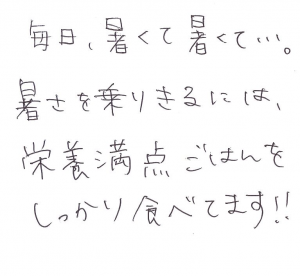 毎日、暑くて暑くて…。
暑さを乗りきるには、
栄養満点ごはんを
しっかり食べてます!!